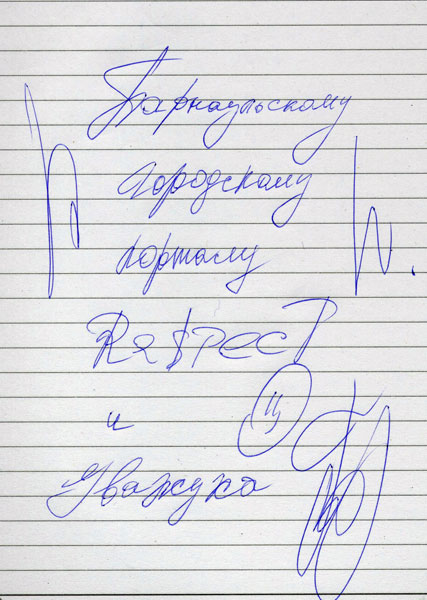 Барнаульскому
городскому
порталу
RE$PECT
и
Уважуха